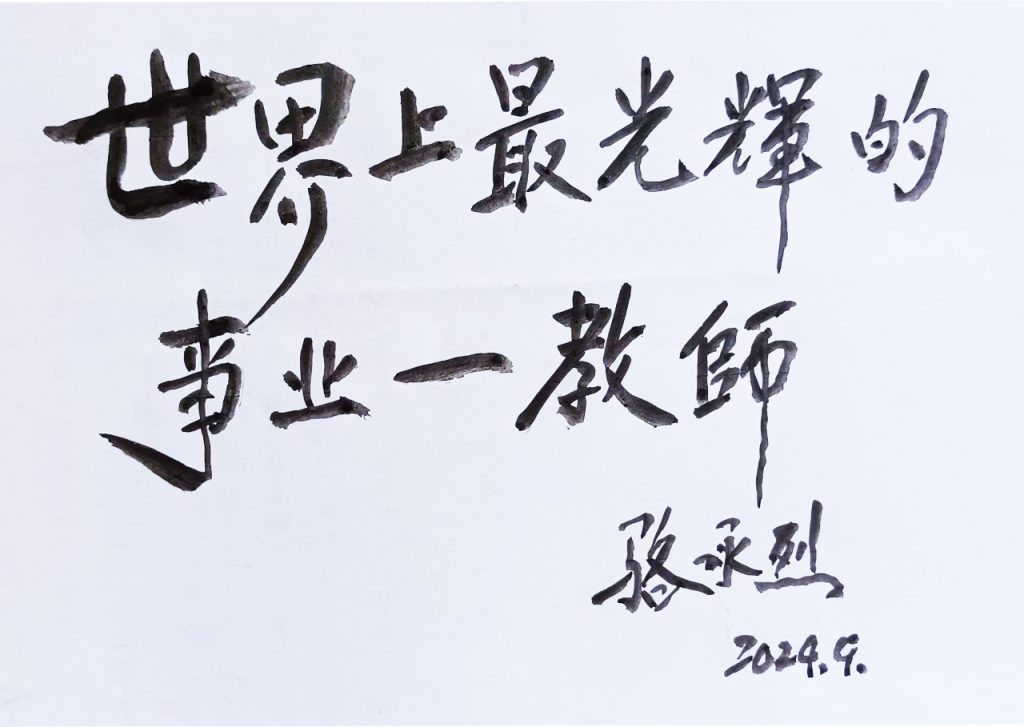 世界上最光輝的
事业一教師
骆承烈
2024.9.